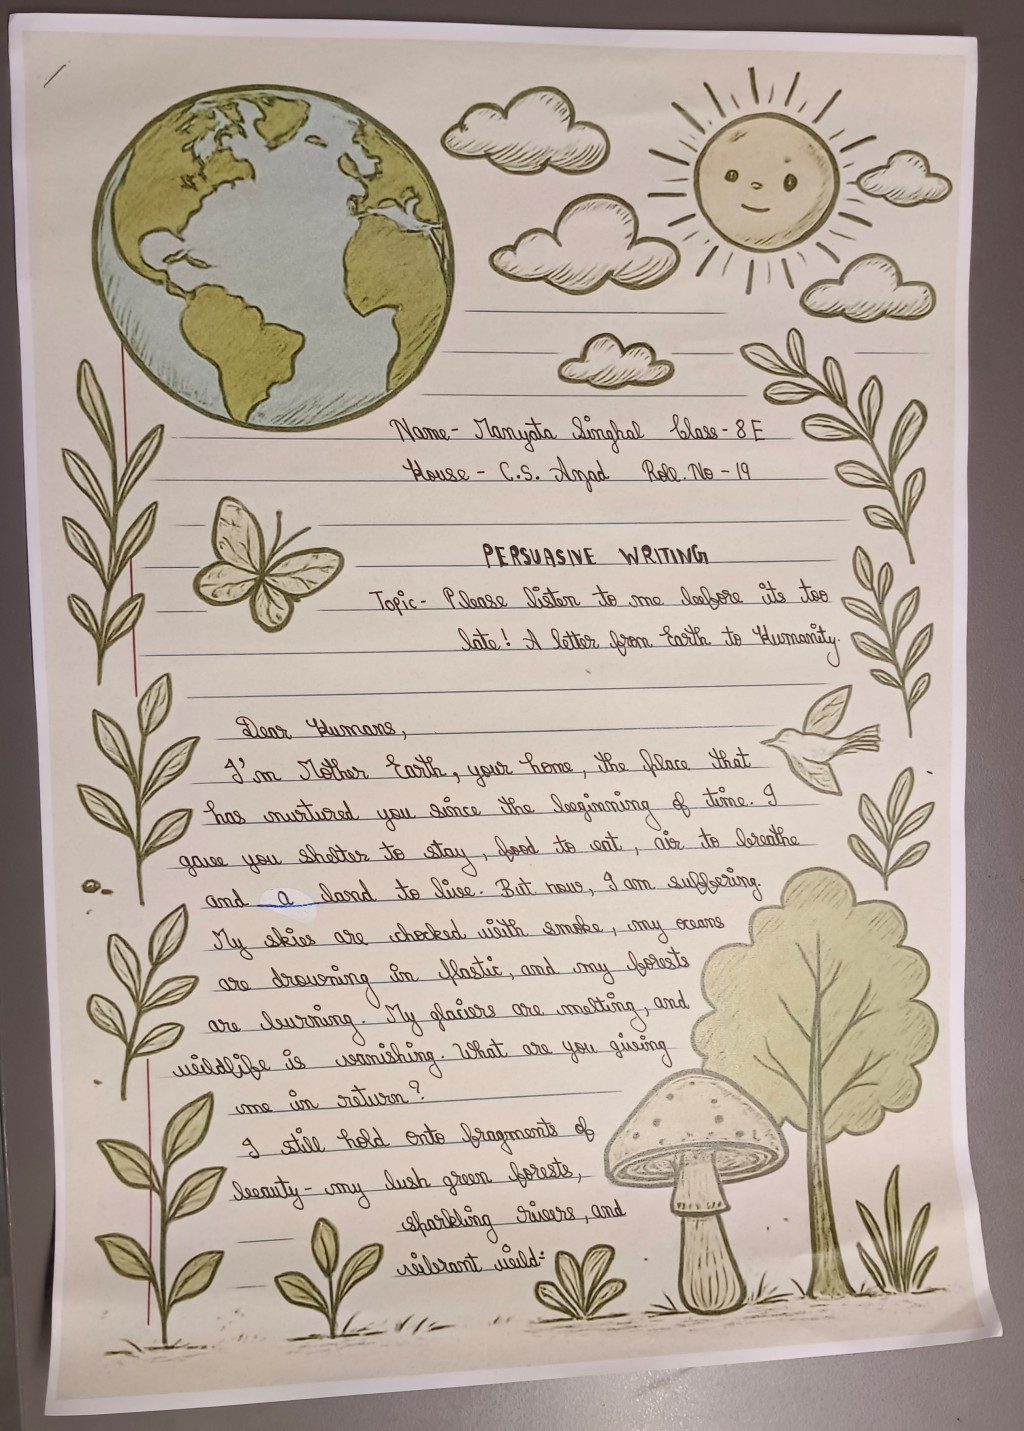 Name- Manyata Singhal Class- 8 E
House - C.S. Azad Roll. No - 19
PERSUASIVE WRITING
Topic- Please listen to me before its too
late! A letter from Earth to Humanity.
Dear Humans,
I'm Mother Earth, your home, the place that
has nurtured you since the beginning of time. I
gave you shelter to stay, food to eat, air to breathe
and a land to live. But now, I am suffering.
My skies are chocked with smoke, my oceans
are drowning in plastic, and my forests
are burning. My glaciers are melting, and
wildlife is vanishing. What are you giving
me in return?
I still hold onto fragments of
beauty- my lush green forests,
sparkling rivers, and
vibrant wild-